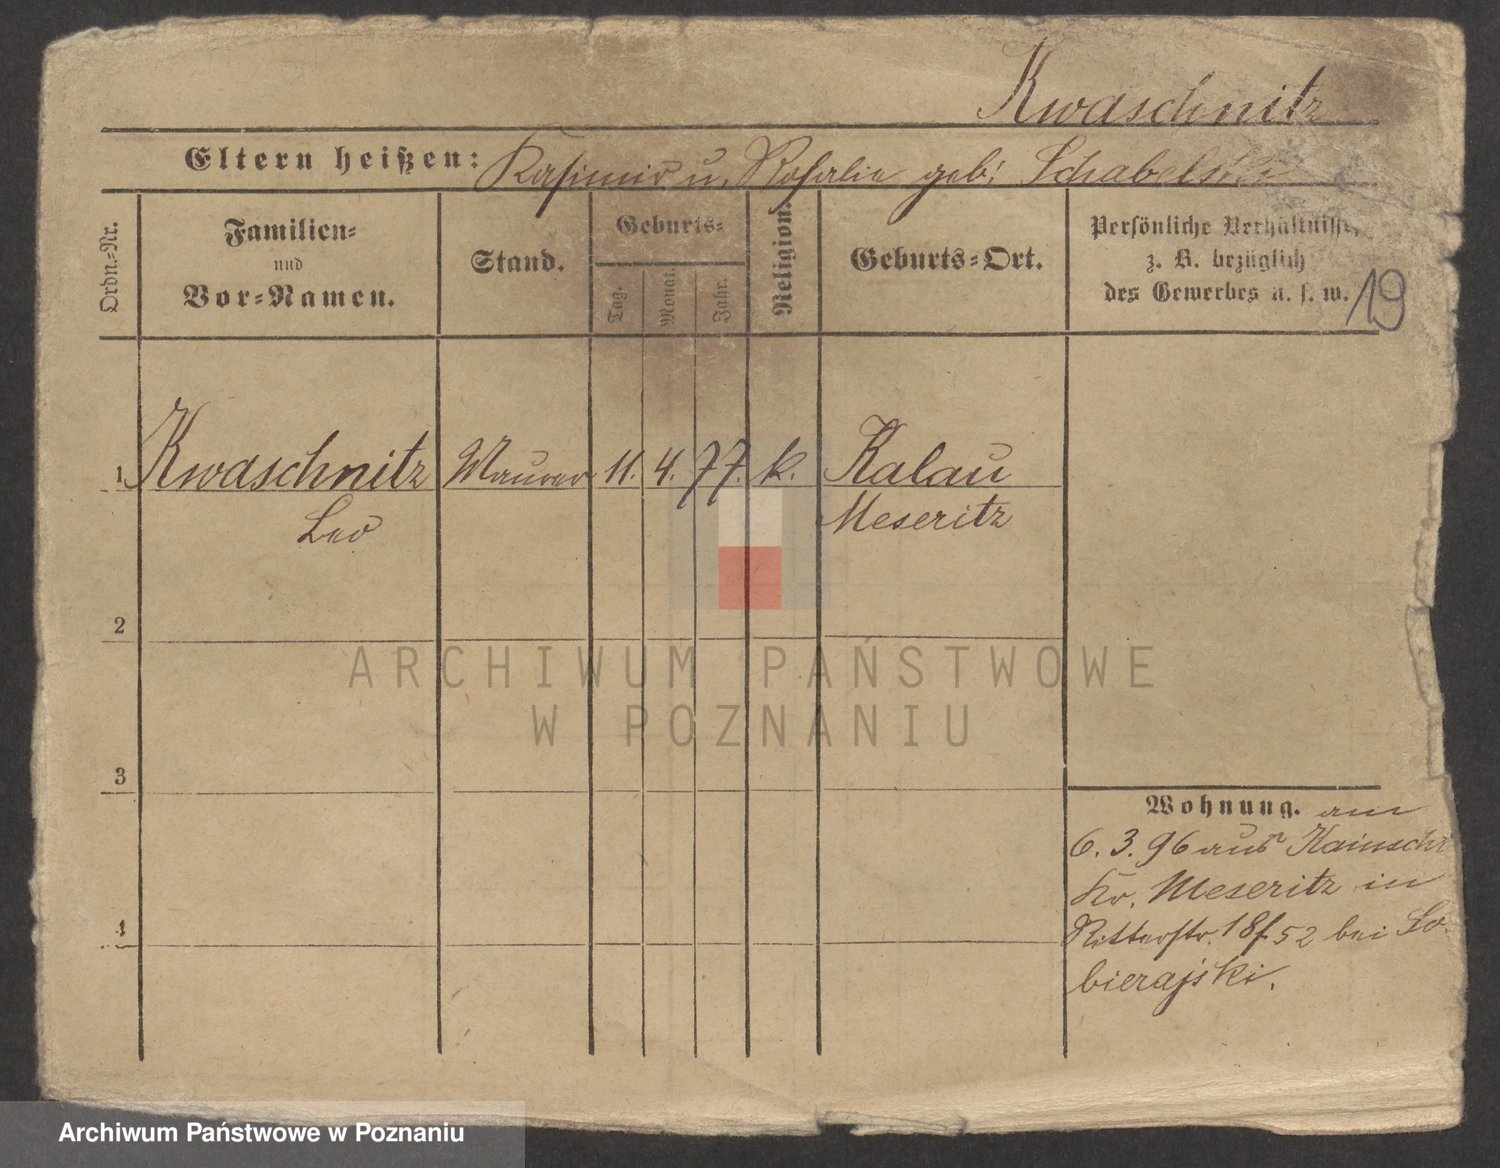 Kwaschnitz
Eltern heißen: Kasimir u. Rosalie geb. Schabelski
Ordn.-Nr.
Familien-
und
Vor-Namen.
Stand.
Geburts-
Tag.
Monat.
Jahr.
Religion.
Geburts-Ort.
Persönliche Verhältnisse,
z. B. bezüglich
des Gewerbes u. s. w.
19
1 Kwaschnitz Maurer 11. 4. 77. k. Kalau
Leo Meseritz
2
3
4
Wohnung. am
6. 3. 96 aus Kainscht
Kr. Meseritz in
Ritterstr. 18 f 52 bei So-
bierajski.
ARCHIWUM PAŃSTWOWE
W POZNANIU
Archiwum Państwowe w Poznaniu